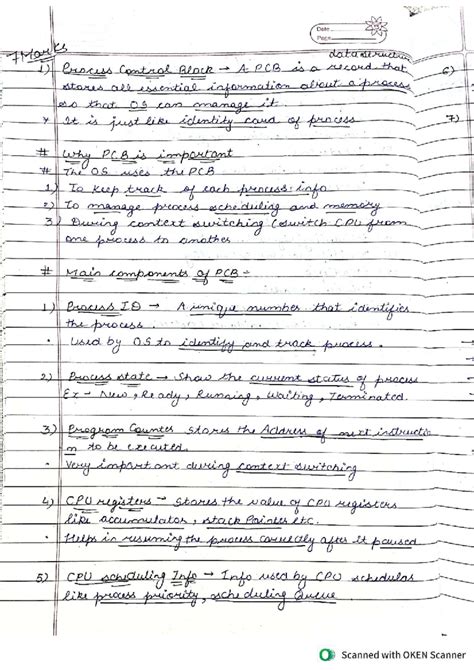 Date
Page
7 Marks
data structure
1) Process Control Block → A PCB is a record that
stores all essential information about a process
so that OS can manage it.
* It is just like identity card of process
# Why PCB is important
# The OS uses the PCB
1) To keep track of each process info
2) To manage process scheduling and memory
3) During context switching (switch CPU from
one process to another
# Main components of PCB -
1) Process ID → A unique number that identifies
the process.
• Used by OS to identify and track process.
2) Process state → Show the current status of process
Ex - New, Ready, Running, Waiting, Terminated.
3) Program Counter stores the Address of next instructio
n to be executed.
• Very important during context switching
4) CPU registers - Stores the value of CPU registers
like accumulator, stack Pointer etc.
• Helps in resuming the process correctly after it paused
5) CPU scheduling Info → Info used by CPU schedulas
like process priority, scheduling Queue
6)
7)
Scanned with OKEN Scanner